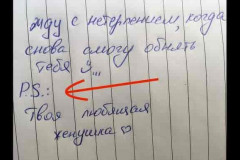 жду с нетерпением, когда
снова смогу обнять
тебя
P.S.:
Твоя любящая
женушка ♡